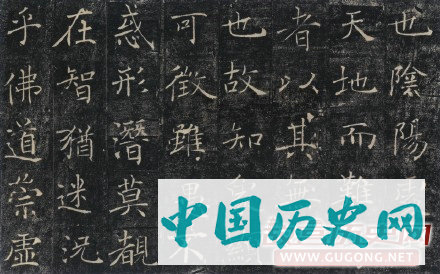 也陰陽處
天地而難
者以其無
也故知象
可徵雖愚不
惑形潛莫覩
在智猶迷況
乎佛道崇虛
中国历史网
WWW.GUGONG.NET